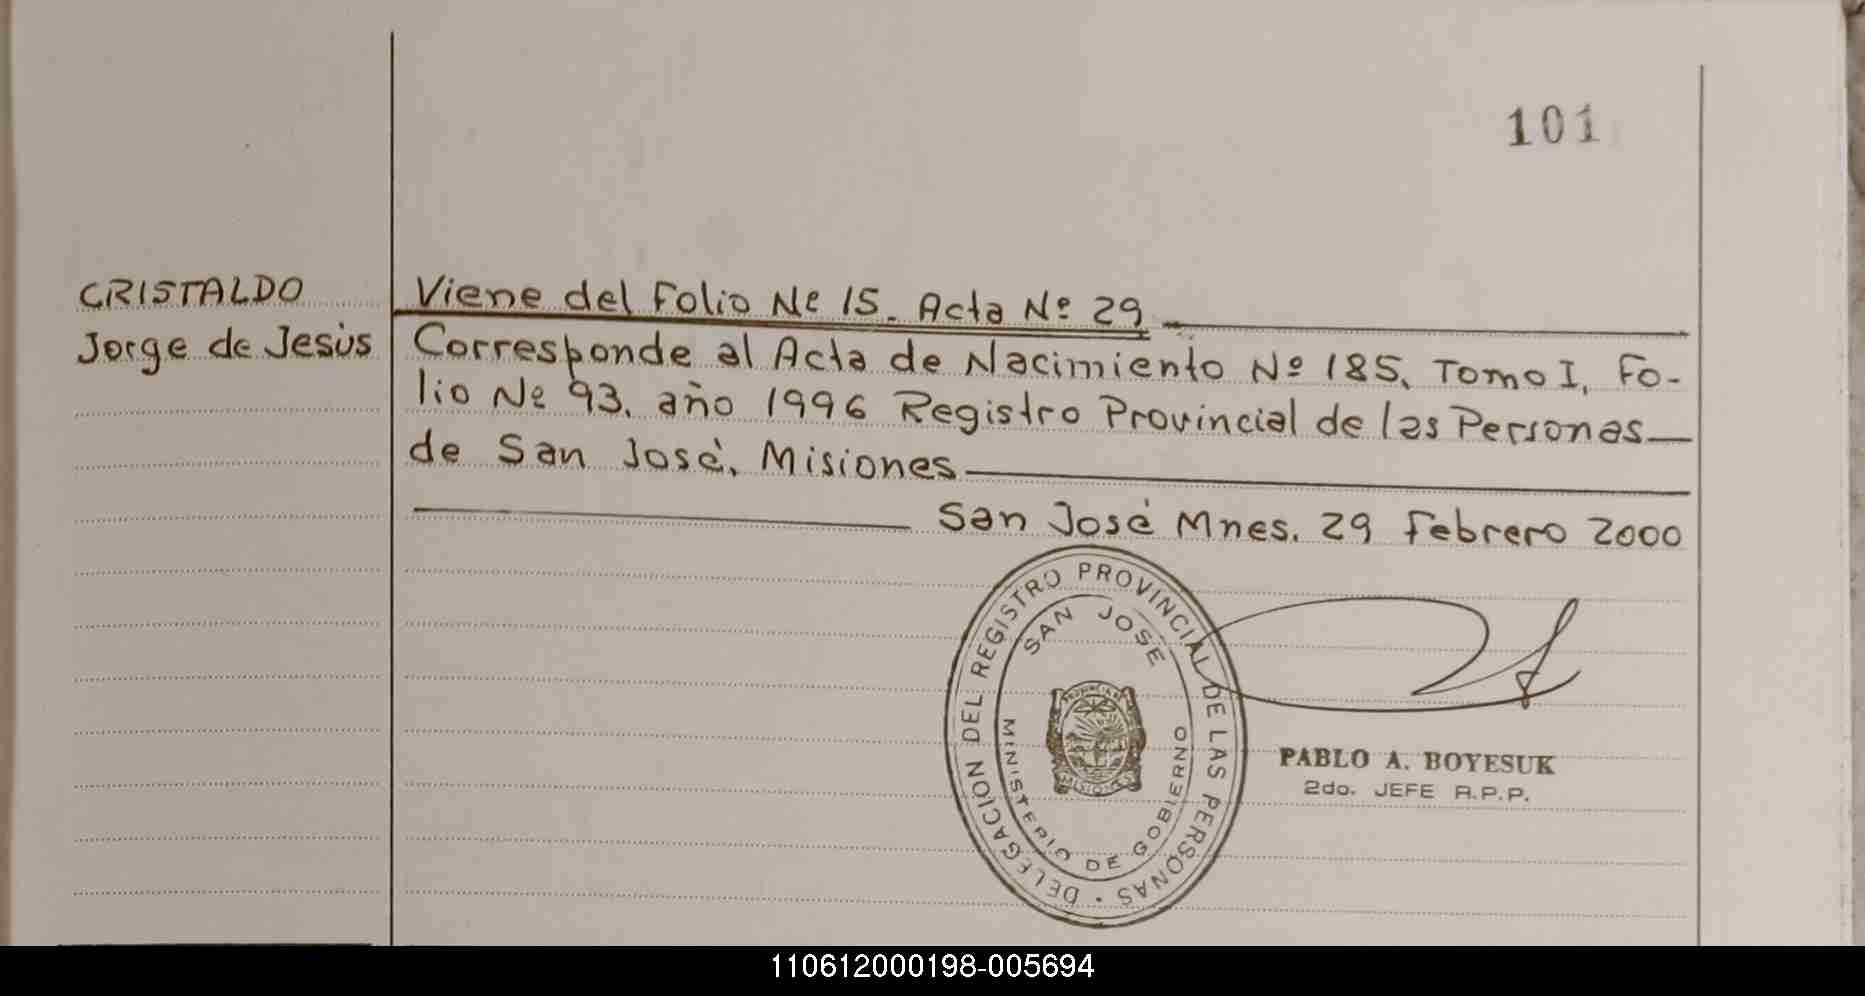 101
CRISTALDO
Jorge de Jesús
Viene del Folio Nº 15. Acta Nº 29
Corresponde al Acta de Nacimiento Nº 185. Tomo I, Fo-
lio Nº 93. año 1996 Registro Provincial de las Personas
de San José. Misiones
San José Mnes. 29 Febrero 2000
DELEGACION DEL REGISTRO PROVINCIAL DE LAS PERSONAS
SAN JOSÉ
MINISTERIO DE GOBIERNO
MISIONES
PABLO A. BOYESUK
2do. JEFE R.P.P.
110612000198-005694